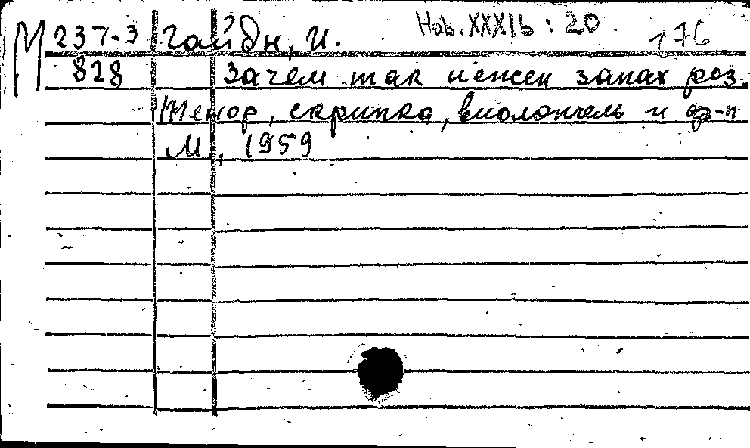 М 237-3 Гайдн, И. Hob. XXXIb : 20 176
828 Зачем так нежен запах роз.
Тенор, скрипка, виолончель и ф-п
М., 1959